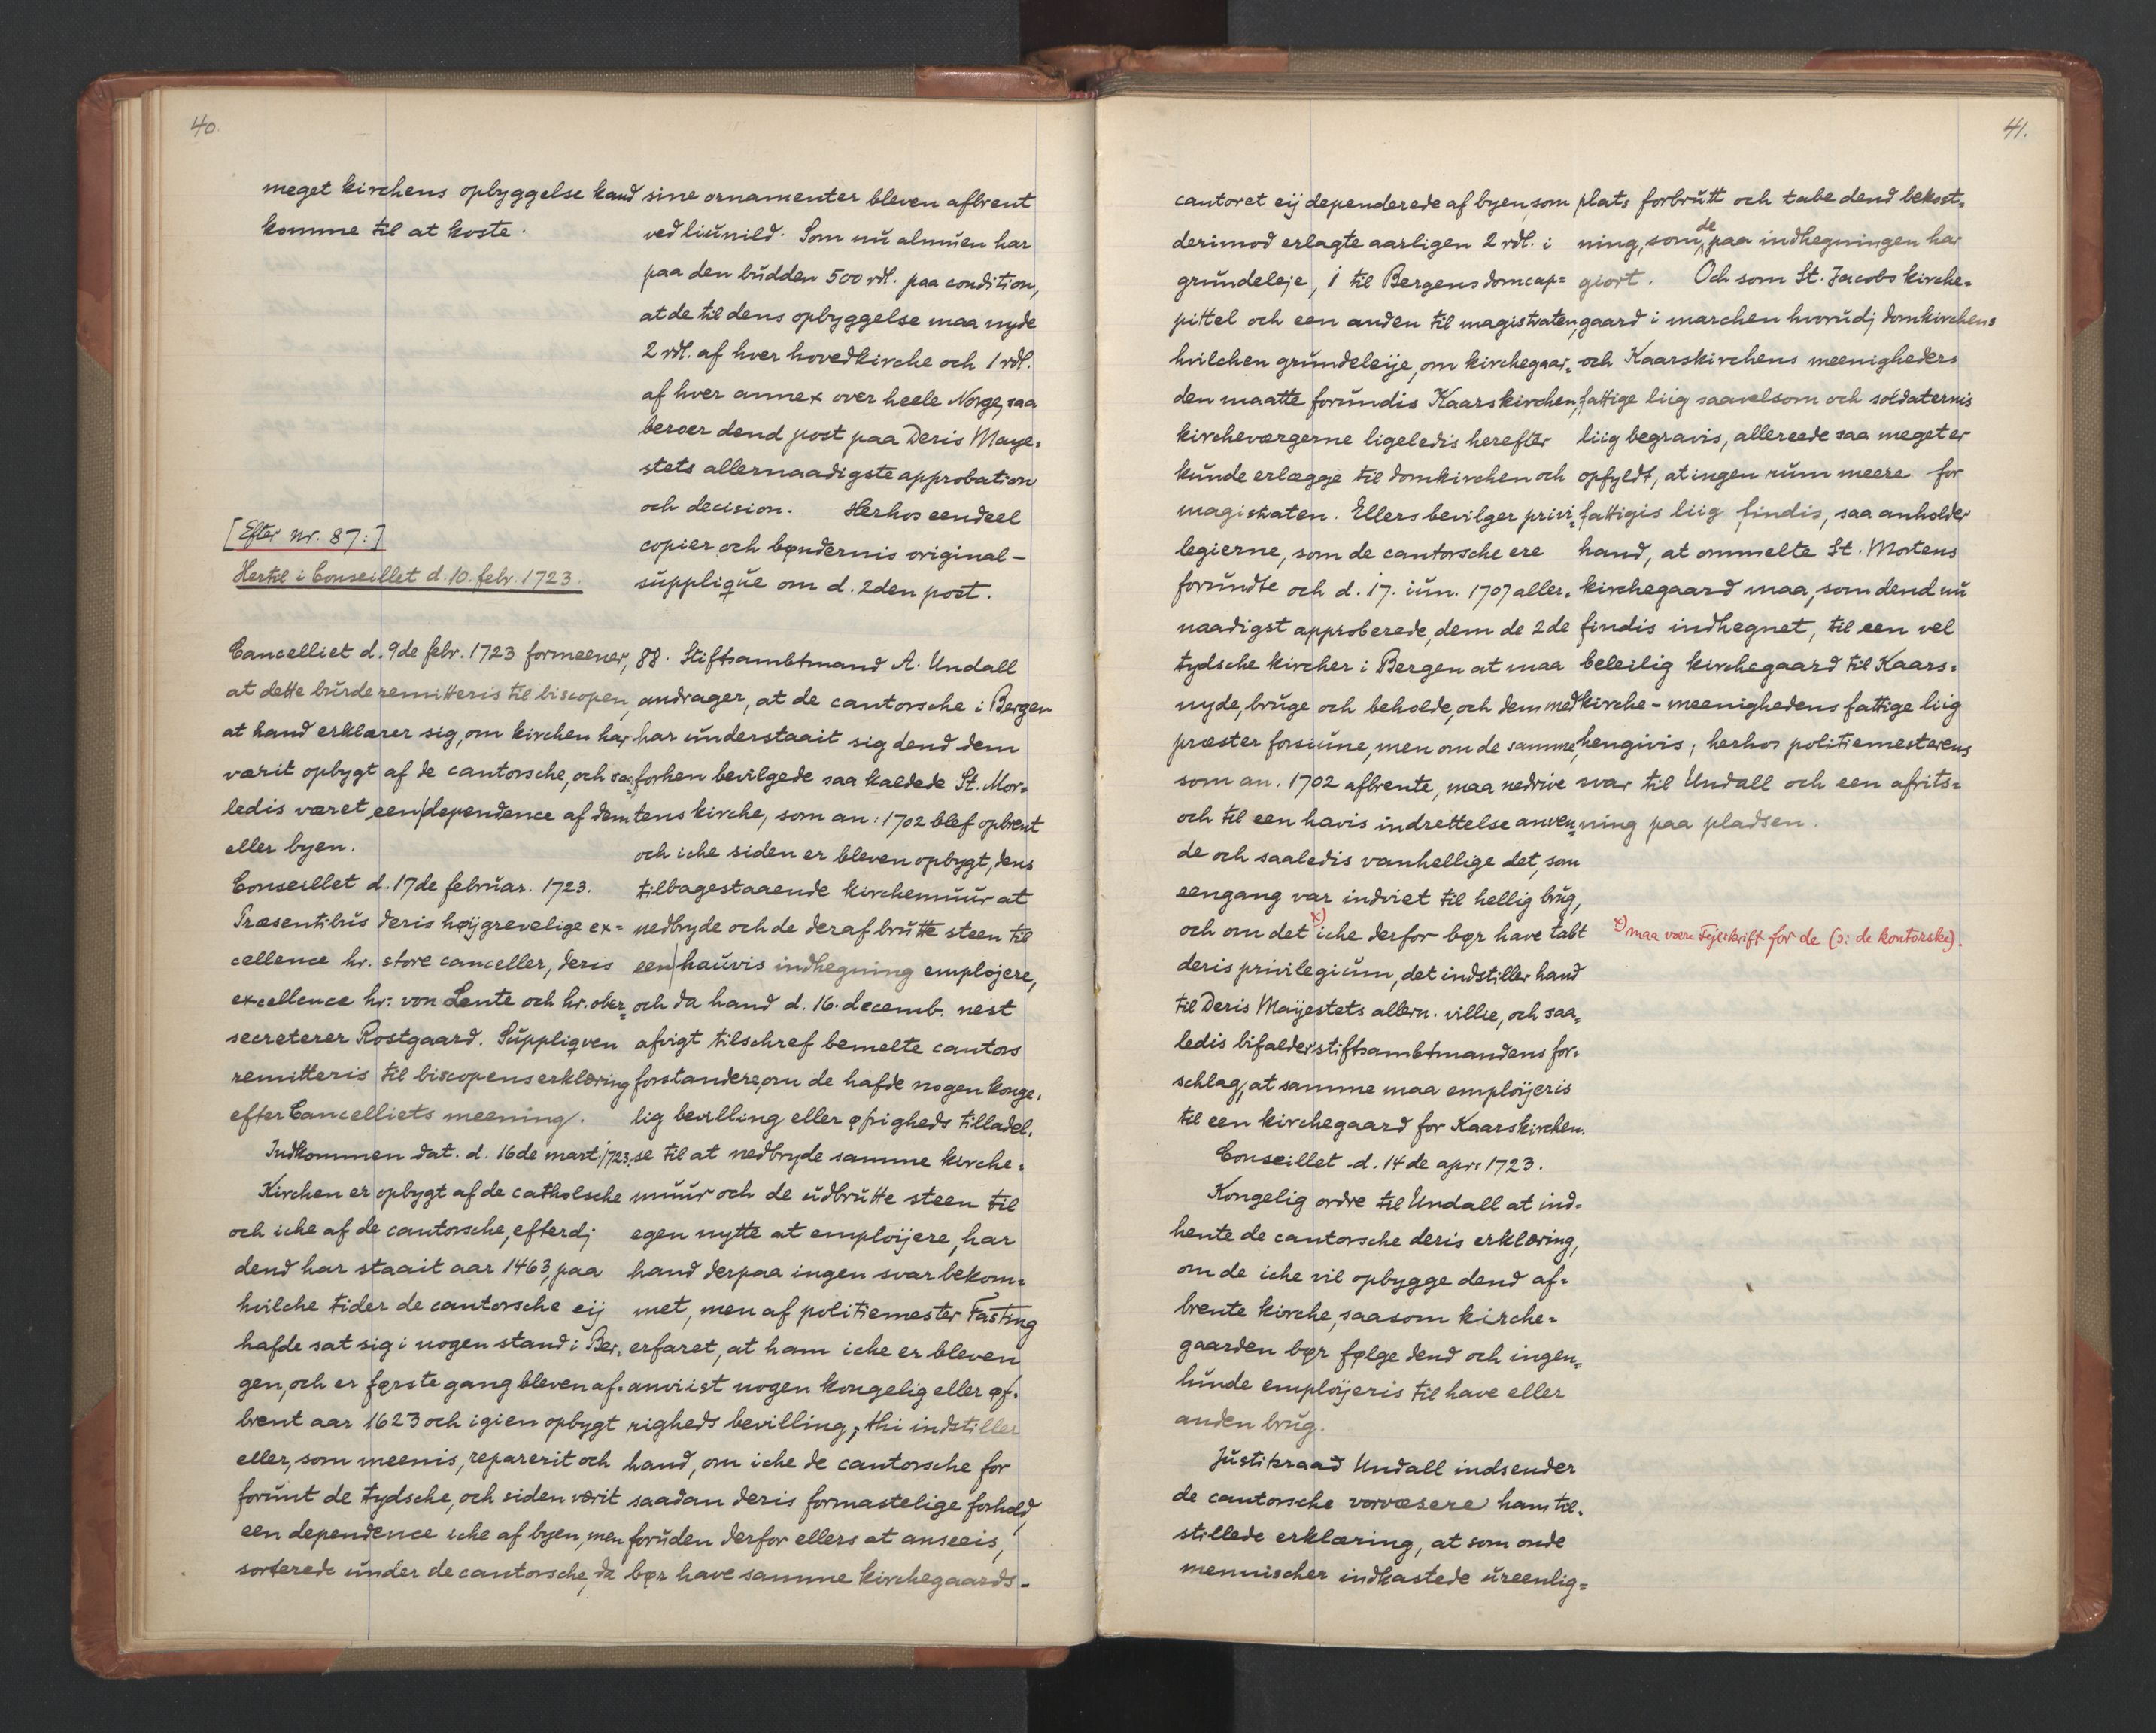 40.
meget kirchens opbyggelse kand
komme til at koste.
[Efter nr. 87:]
Hertil i Conseillet d. 10. febr. 1723.
Cancelliet d. 9de febr. 1723 formeener,
at dette burde remitteris til biscopen,
at hand erklærer sig, om kirchen har
værit opbygt af de cantorsche, och saa-
ledis været een dependence af dem
eller byen.
Conseillet d. 17de februar. 1723.
Præsentibus deris høÿgrevelige ex=
cellence hr. store canceller, deris
excellence hr: von Lente och hr. ober=
secreterer Rostgaard. Suppliqven
remitteris til biscopens erklæring
efter Cancelliets meening.
Indkommen dat. d. 16de mart. 1723.
Kirchen er opbygt af de catholsche
och iche af de cantorsche, efterdj
dend har staait aar 1463, paa
hvilche tider de cantorsche eij
hafde sat sig i nogen stand i Ber-
gen, och er første gang bleven af-
brent aar 1623 och igien opbygt
eller, som meenis, reparerit och
forunt de tydsche, och siden værit
een dependence iche af byen, men
sorterede under de cantorsche, da
sine ornamenter bleven afbrent
ved liunild. Som nu almuen har
paa den budden 500 rdl. paa condition,
at de til dens opbyggelse maa nyde
2 rdl. af hver hovedkirche och 1 rdl.
af hver annex over heele Norge, saa
beroer dend post paa Deris Maye-
stets allernaadigste approbation
och decision. Herhos eendeel
copier och bøndernis original-
supplique om d. 2den post.
88. Stiftsambtmand A. Undall
andrager, at de cantorsche i Bergen
har understaait sig dend dem
forhen bevilgede saa kaldede St. Mor-
tens kirche, som an: 1702 blef opbrent
och iche siden er bleven opbygt, dens
tilbagestaaende kirchemuur at
nedbryde och de deraf brutte steen til
een hauvis indhegning employere,
och da hand d. 16. decemb. nest
afvigt tilschref bemelte cantors
forstandere, om de hafde nogen konge-
lig bevilling eller øfrigheds tilladel-
se til at nedbryde samme kirche-
muur och de udbrutte steen til
egen nytte at emploijere, har
hand derpaa ingen svar bekom=
met, men af politiemester Fasting
erfaret, at ham iche er bleven
anviist nogen kongelig eller øf-
righeds bevilling; thi indstiller
hand, om iche de cantorsche for
saadan deris formastelige forhold,
foruden derfor ellers at anseeis,
bør have samme kirchegaards-
41.
cantoret eij dependerede af byen, som
derimod erlagte aarligen 2 rdl. i
grundeleje, 1 til Bergens domcap=
pittel och een anden til magistraten,
hvilchen grundeleije, om kirchegaar-
den maatte forundis Kaarskirchen,
kircheværgerne ligeledis herefter
kunde erlægge til domkirchen och
magistraten. Ellers bevilger privi-
legierne, som de cantorsche ere
forundte och d. 17. iun. 1707 aller-
naadigst approberede, dem de 2de
tydsche kircher i Bergen at maa
nyde, bruge och beholde, och dem med
præster forsiune, men om de samme,
som an. 1702 afbrente, maa nedrive
och til een havis indrettelse anven=
de och saaledis vanhellige det, som
eengang var indviet til hellig brug,
och om det x) iche derfor bør have tabt
deris privilegium, det indstiller hand
til Deris Maÿestets allern. villie, och saa-
ledis bifalder stiftsambtmandens for-
schlag, at samme maa employeris
til een kirchegaard for Kaarskirchen.
Conseillet d. 14de apr: 1723.
Kongelig ordre til Undall at ind-
hente de cantorsche deris erklæring,
om de iche vil opbygge dend af-
brente kirche, saasom kirche-
gaarden bør følge dend och ingen-
lunde employeris til have eller
anden brug.
Justitsraad Undall indsender
de cantorsche vorvæsere ham til-
stillede erklæring, at som onde
mennischer indkastede ureenlig=
plats forbrutt och tabe dend bekost-
ning, som de paa indhegningen har
giort. Och som St. Jacobs kirche-
gaard i marchen hvorudj domkirchens
och Kaarskirchens meenigheders
fattige liig saavelsom och soldaternis
liig begravis, allereede saa meget er
opfyldt, at ingen rum meere for
fattigis liig findis, saa anholder
hand, at ommelte St. Mortens
kirchegaard maa, som dend nu
findis indhegnet, til een vel
beleilig kirchegaard til Kaars-
kirche-meenighedens fattige liig
hengivis; herhos politiemesterens
svar til Undall och een afrits-
ning paa pladsen.
x) maa være Fejlskrift for de (ɔ: de kontorske).